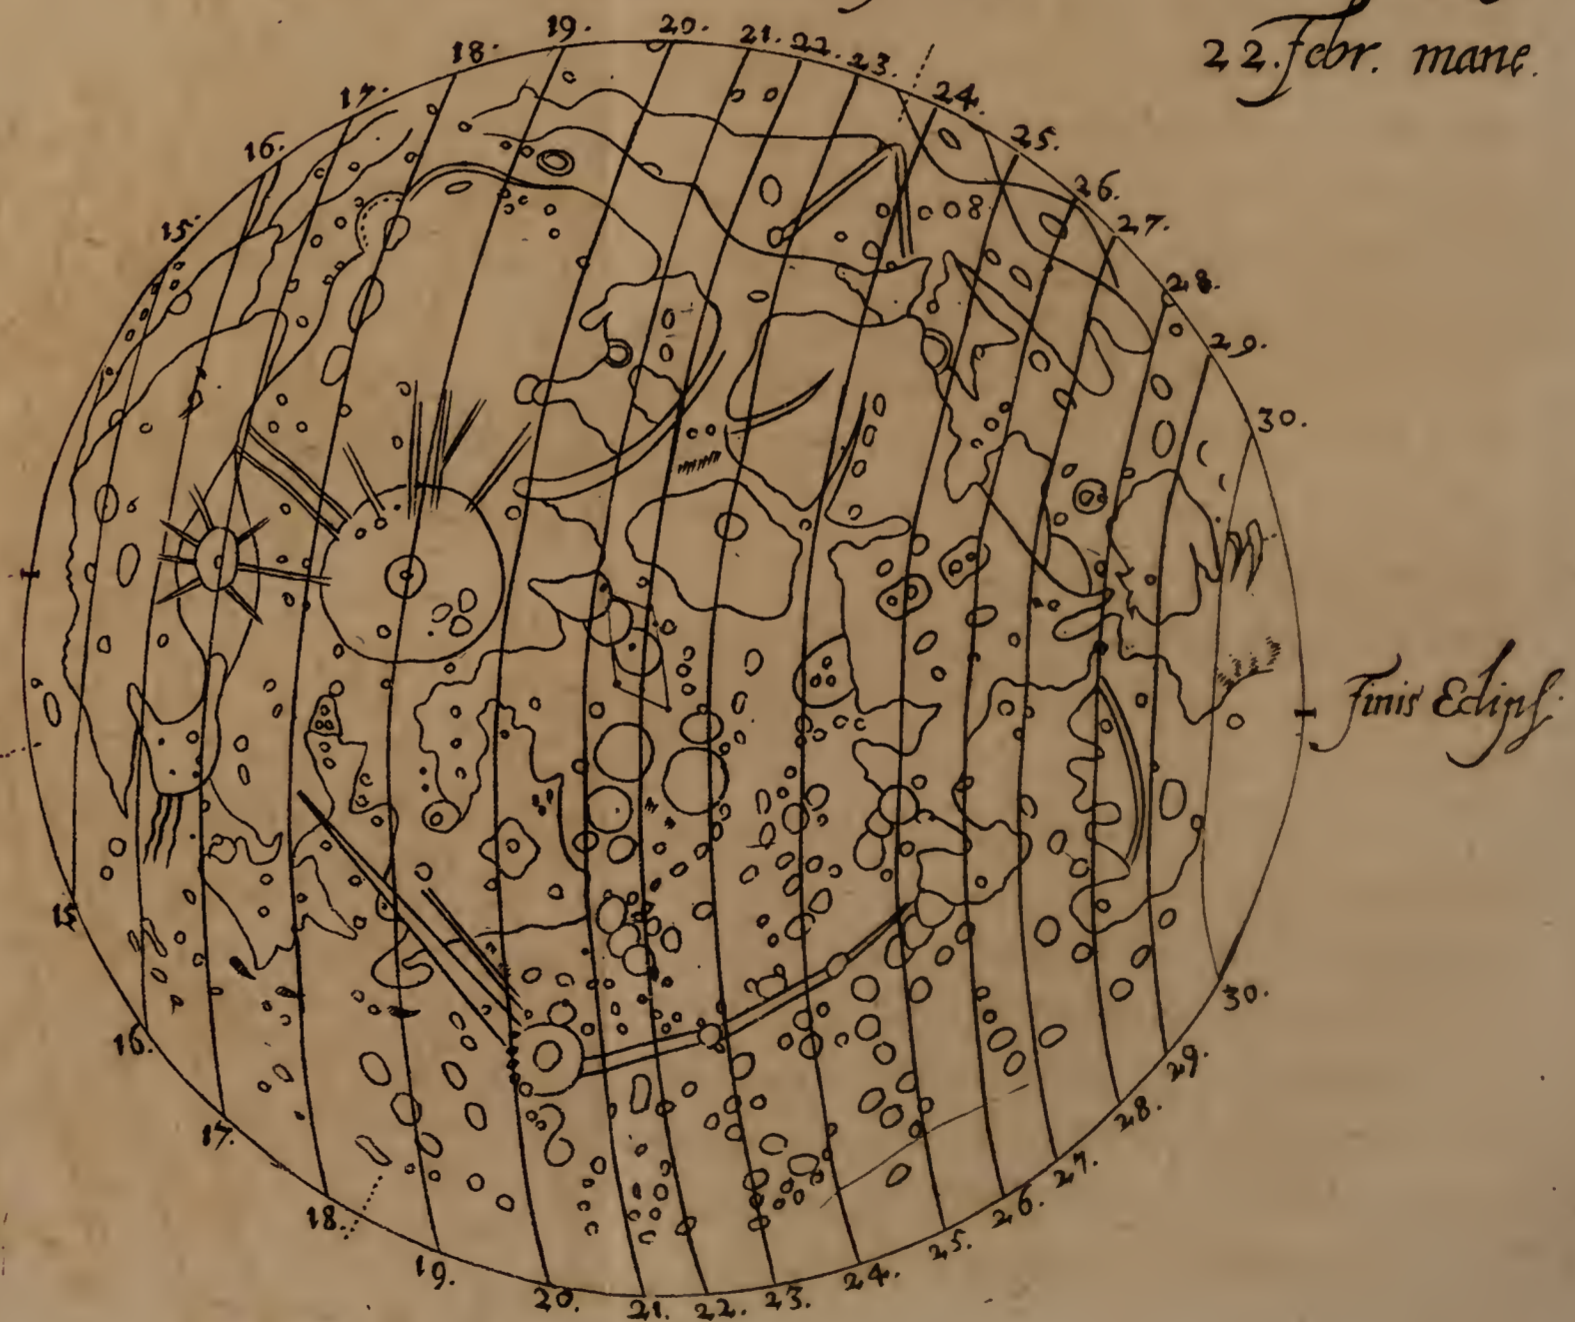 22. Febr. mane.
15. 16. 17. 18. 19. 20. 21. 22. 23. 24. 25. 26. 27. 28. 29. 30.
Finis Eclips.
15. 16. 17. 18. 19. 20. 21. 22. 23. 24. 25. 26. 27. 28. 29. 30.